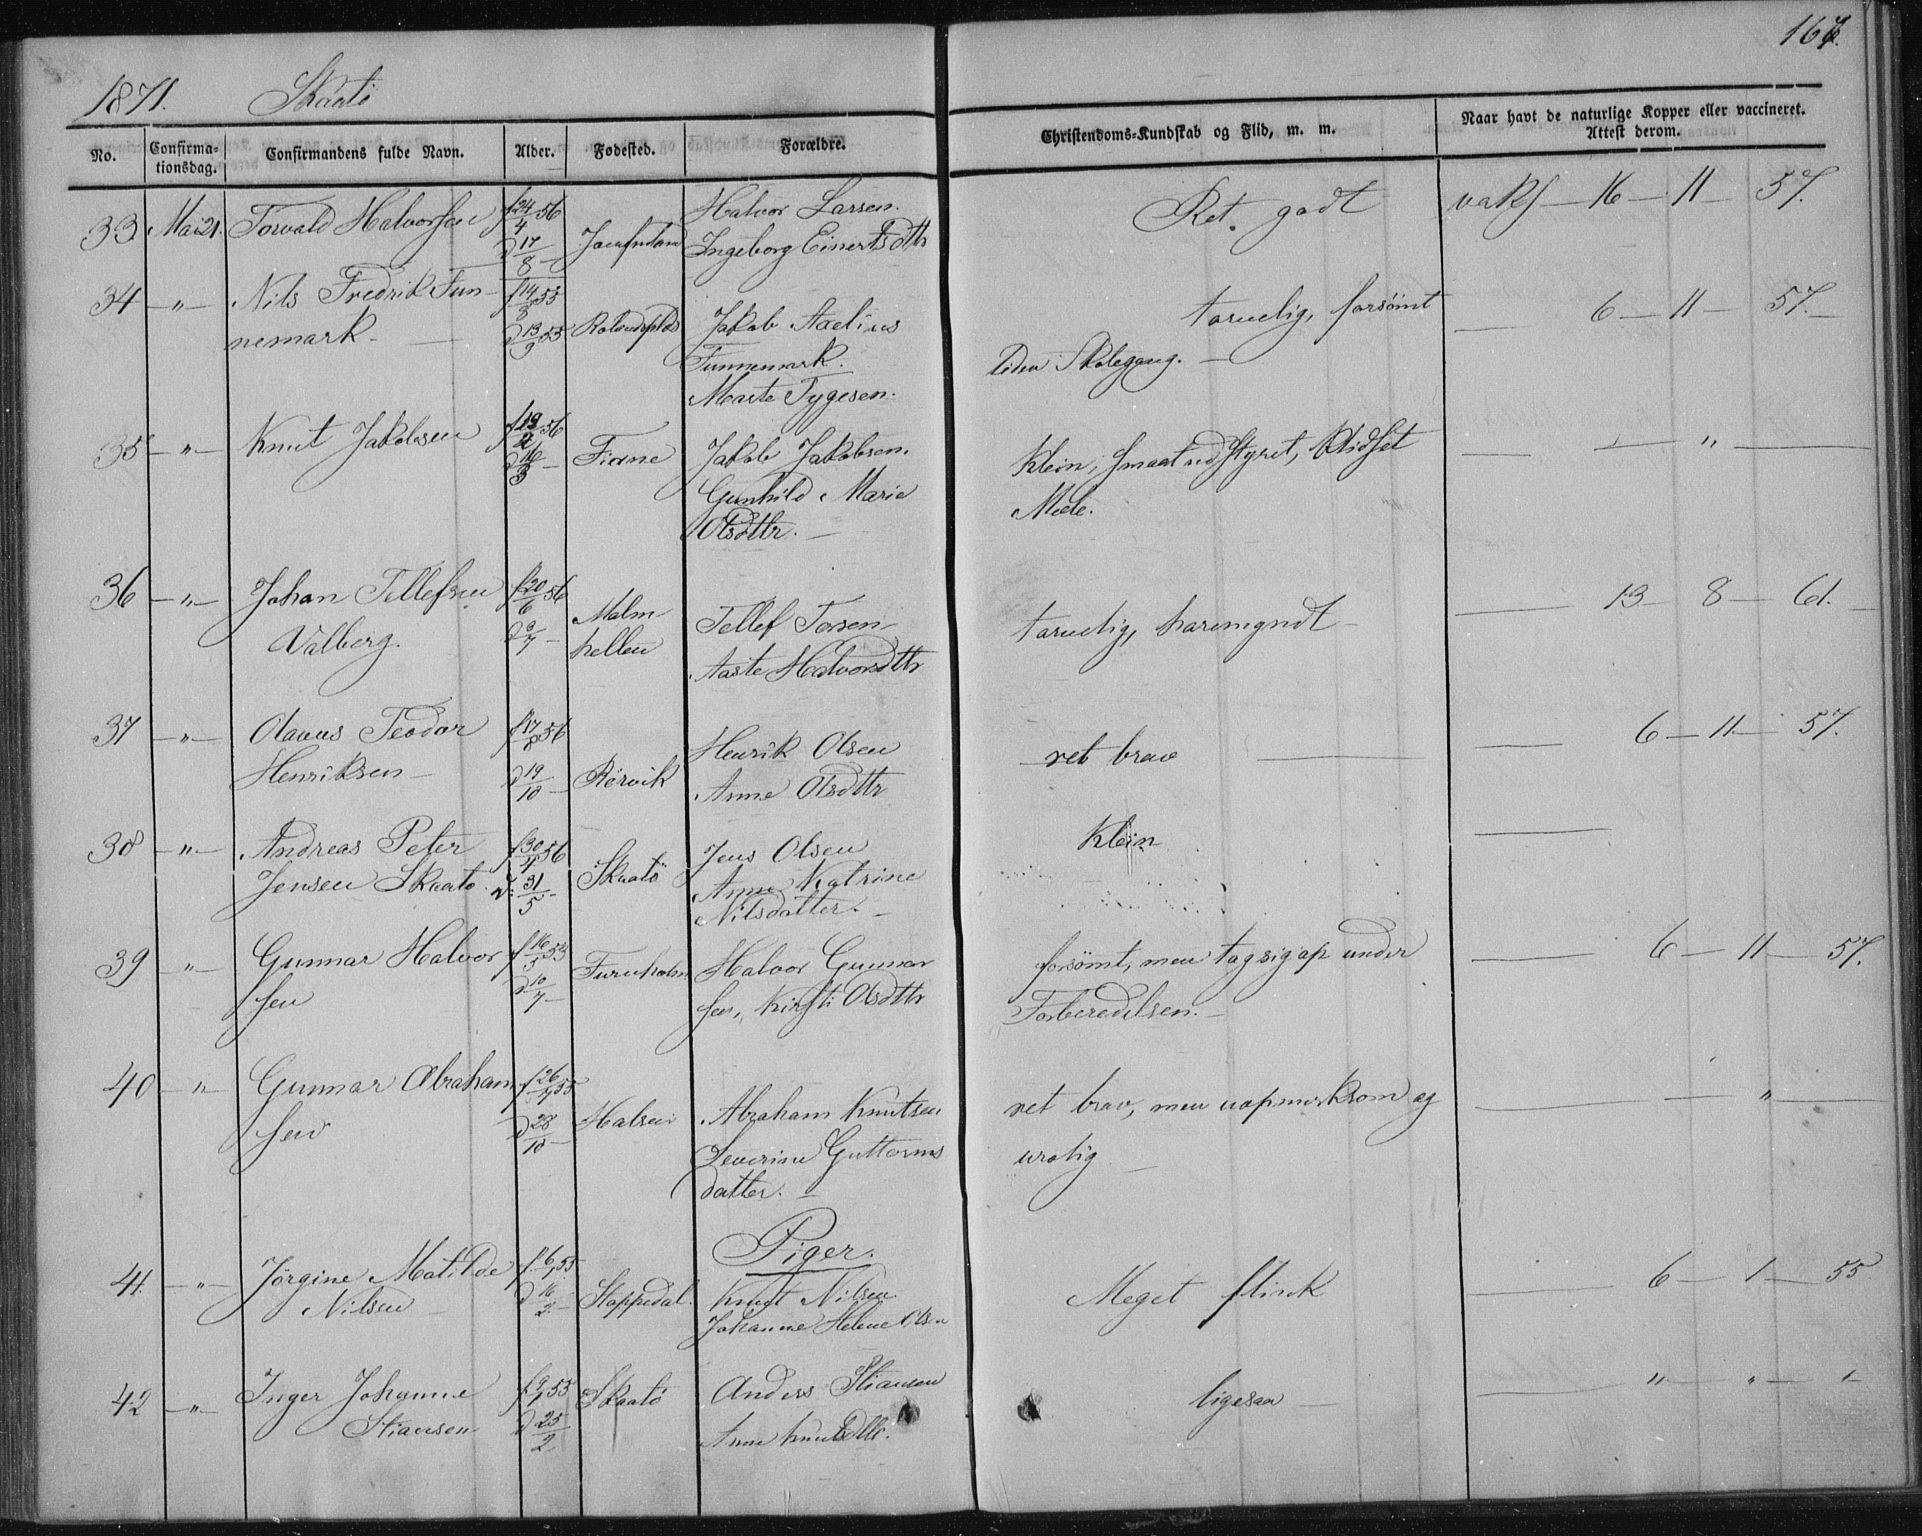 167.
1871. Skaatö
No. Confirma-tionsdag. Confirmandens fulde Navn. Alder. Fødested. Forældre. Christendoms-Kundskab og Flid, m. m. Naar havt de naturlige Kopper eller vaccineret. Attest derom.
33. Mai 21. Torvald Halvorsen f 24/4 56 Halvor Larsen. Ret godt vaks - 16 - 11 - 57.
d 17/8 - Ingeborg Einertsdttr
34 - " - Nils Fredrik Tun- f 14/8 55 tarvelig, forsömt 6 - 11 - 57.
nemark - d 13/9 55 Jakob Axelius
Tunnemark. liden Skolegang. -
Marte Tygesen.
35 - " - Knut Jakobsen f 13/2 56 Fiane Jakob Jakobsen. Klein, smaat udstyret, - " -
d 16/3 - Gunhild Marie
Olsdttr. -
36 - " - Johan Tellefsen f 20/6 56 Malm Tellef Torsen tarvelig, 13 8 - 61.
Valberg. d 9/7 - hellen Aaste Halvorsdttr
37 - " - Olavus Teodor f 17/8 56 Henrik Olsen ret brav 6 - 11 - 57.
Henriksen - d 19/10 - Rörvik Anne Olsdttr
38 - " - Andreas Peter f 30/4 56 Skaatö Jens Olsen Klein
Jensen Skaatö. d. 31/5 - Anne Katrine
Nilsdatter. -
39 " - Gunnar Halvor f 16/5 55 Furuholm Halvor Gunnar forsömt, men tog sig op under 6 - 11 - 57.
sen d 10/7 - sen, Kirsti Olsdttr Forberedelsen. -
40 - " Gunnar Abraham f 26/7 55 Abraham Knutsen ret brav, men uopmerksom og "
sen d 28/10 - Halsen Severine Guttorms urolig -
datter. -
Piger.
41. - " - Jörgine Matilde f. 6/1 55 Stoppedal. Knut Nilsen Meget flink 6 - 1 - 55
Nilsen d 16/2 - Johanne Helene Olsen
42 - " - Inger Johanne f 9/1 55 Skaatö Anders Stiansen ligesaa " - " -
Stiansen d 25/2 Anne Knutsdttr.